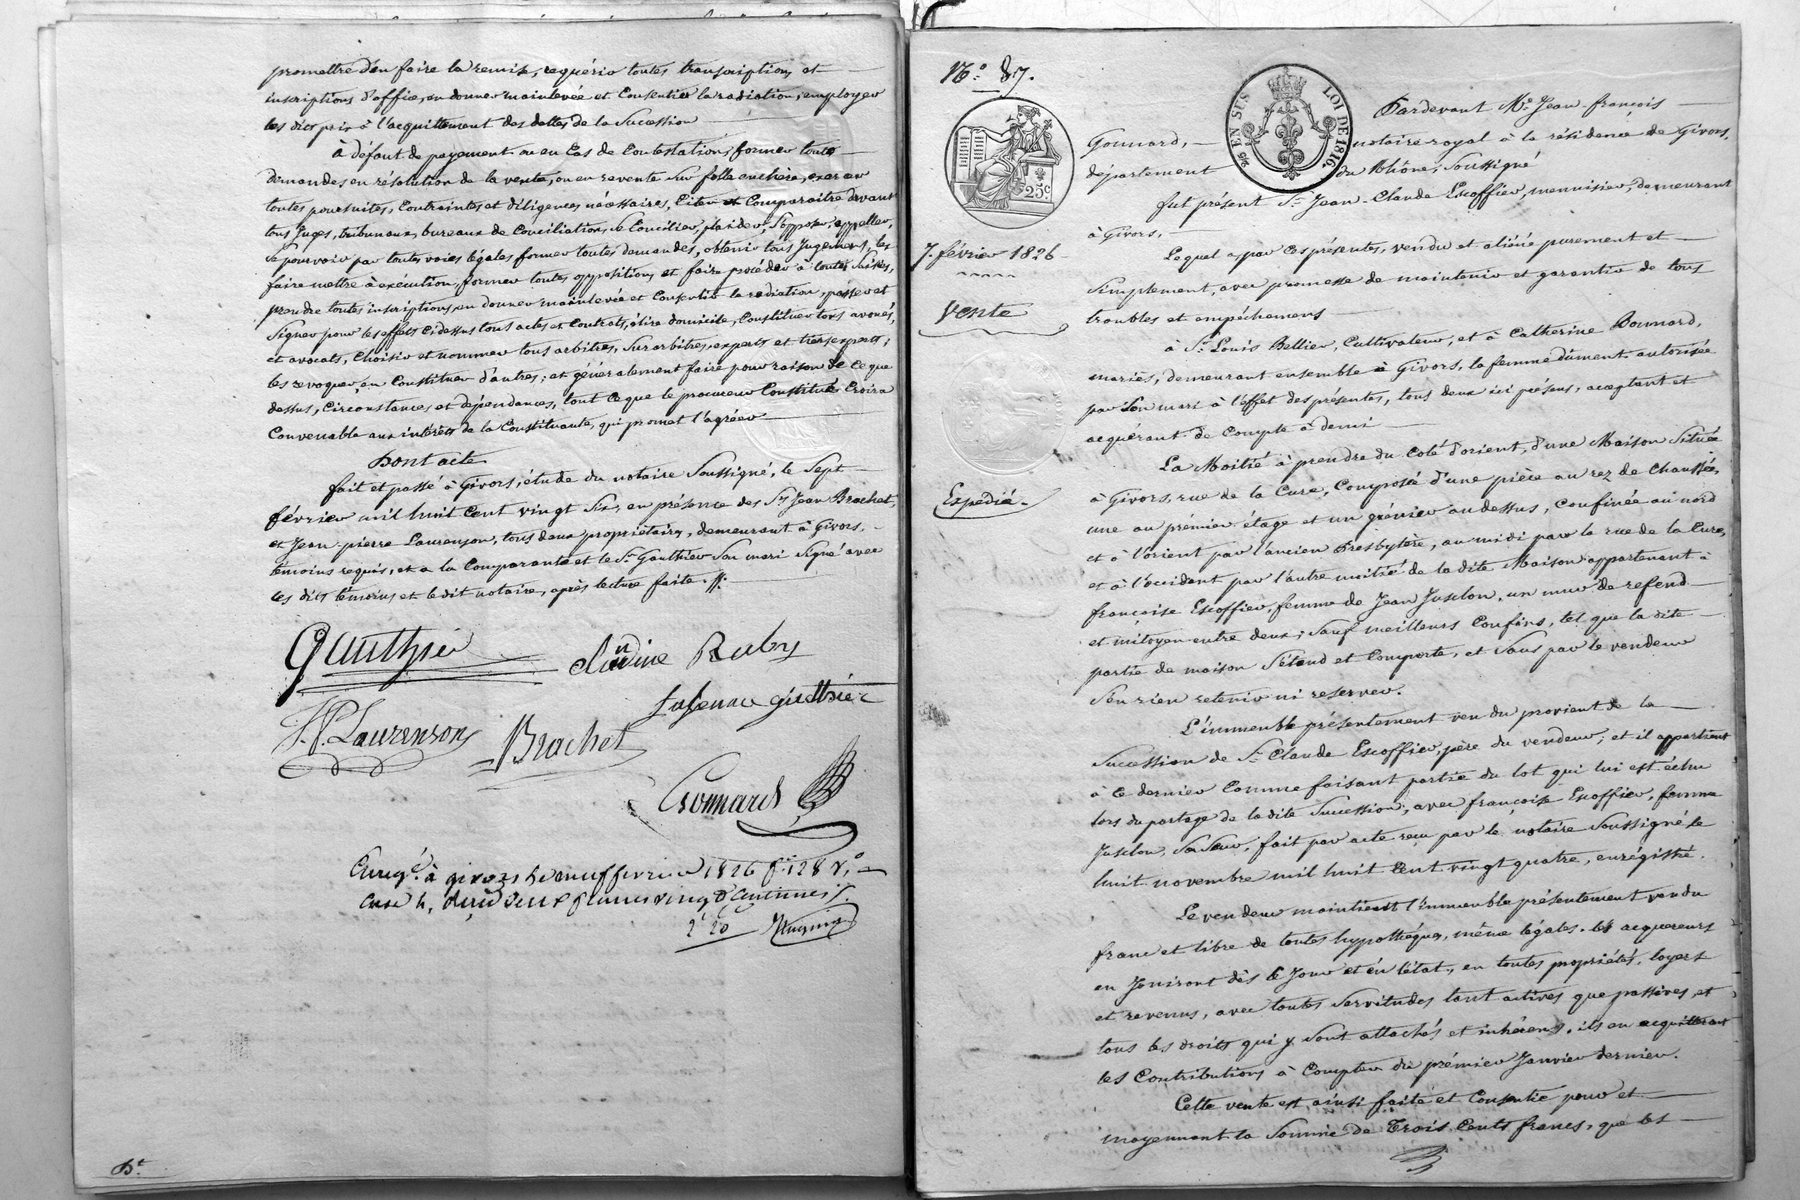 promettre d'en faire la remise, requérir toutes transcriptions et
inscriptions d'office, en donner mainlevée et Consentir la radiation, employer
les dits prix à l'acquittement des dettes de la Succession
à défaut de payement ou en Cas de Contestation, former toutes
demandes en résolution de la vente, ou en revente sur folle enchère, exercer
toutes poursuites, Contraintes et diligences nécessaires, Citer et Comparaitre devant
tous Juges, tribunaux, bureaux de Conciliation, se Concilier, plaider, S'opposer, appeller,
Se pourvoir par toutes voies légales former toutes demandes, obtenir tous Jugemens, les
faire mettre à exécution, former toutes oppositions et faire procéder à toutes Saisies,
prendre toutes inscriptions, en donner mainlevée et Consentir la radiation, passer et
Signer pour les effets Cidessus tous actes et Contrats, élire domicile, Constituer tous avoués,
et avocats, Choisir et nommer tous arbitres, Surarbitres, experts et tiers experts,
les revoquer, en Constituer d'autres; et généralement faire pour raison de Ce que
dessus, Circonstances et dépendances, tout Ce que le procureur Constitué Croira
Convenable aux intérêts de la Constituante, qui promet l'agréer
Dont acte
fait et passé à Givors, étude du notaire Soussigné, le Sept
février mil huit Cent vingt Six, en présence des Srs Jean Brachet,
et Jean-pierre Laurenson, tous deux propriétaires, demeurant à Givors,
témoins requis, et a la Comparante et le Sr Gauthier Son mari Signé avec
les dits témoins et ledit notaire, après lecture faite.
Gauthier
Claudine Ruby
gauthier
J.P. Laurenson
Brachet
Gonnard
Enreg.é à givors le neuf fevrier 1826 f° 128 v°
Case 4, reçu deux francs vingt Centimes
2f 20c
Dt
N.° 87.
25c
EN SUS
LOI DE 1816.
Pardevant Me Jean-françois
Gonnard, notaire royal à la résidence de Givors,
département du Rhône, Soussigné
fut présent Sr Jean-Claude Escoffier, menuisier, demeurant
à Givors,
7. février 1826
Vente
Expédié
Lequel a par Ces présentes, vendu et aliéné purement et
Simplement, avec promesse de maintenir et garantir de tous
troubles et empêchemens
à Sr Louis Bellier, Cultivateur, et à Catherine Bonnard,
mariés, demeurant ensemble à Givors, la femme dûment autorisée
par Son mari à l'effet des présentes, tous deux ici présens, aceptant et
acquérant de Compte à demi
La Moitié à prendre du Coté d'orient, d'une Maison Située
à Givors, rue de la Cure, Composée d'une pièce au rez de Chaussée,
une au prémier étage et un grénier au dessus, Confinée au nord
et à l'orient par l'ancien Presbytère, au midi par la rue de la Cure,
et à l'occident par l'autre moitié de la dite Maison appartenant à
françoise Escoffier, femme de Jean Jusclon, un mur de refend
et mitoyen entre deux; Sauf meilleurs Confins, tel que la dite
partie de maison S'étend et Comporte, et Sans par le vendeur
S'en rien retenir ni reserver.
L'immeuble présentement vendu provient de la
Succession de Sr Claude Escoffier, père du vendeur; et il appartient
à Ce dernier Comme faisant partie du lot qui lui est échu
lors du partage de ladite Succession, avec françoise Escoffier, femme
Jusclon, Sa Sœur, fait par acte reçu par le notaire Soussigné le
huit novembre mil huit Cent vingt quatre, enrégistré.
Le vendeur maintient l'immeuble présentement vendu
franc et libre de toutes hypothèques, même légales. les acquéreurs
en Jouiront dès le Jour et en l'état, en toutes propriétés, loyers
et revenus, avec toutes Servitudes tant actives que passives, et
tous les droits qui y Sont attachés et inhérens. ils en acquitteront
les Contributions à Compter du prémier Janvier dernier.
Cette vente est ainsi faite et Consentie pour et
moyennant la Somme de Trois Cents francs, que les